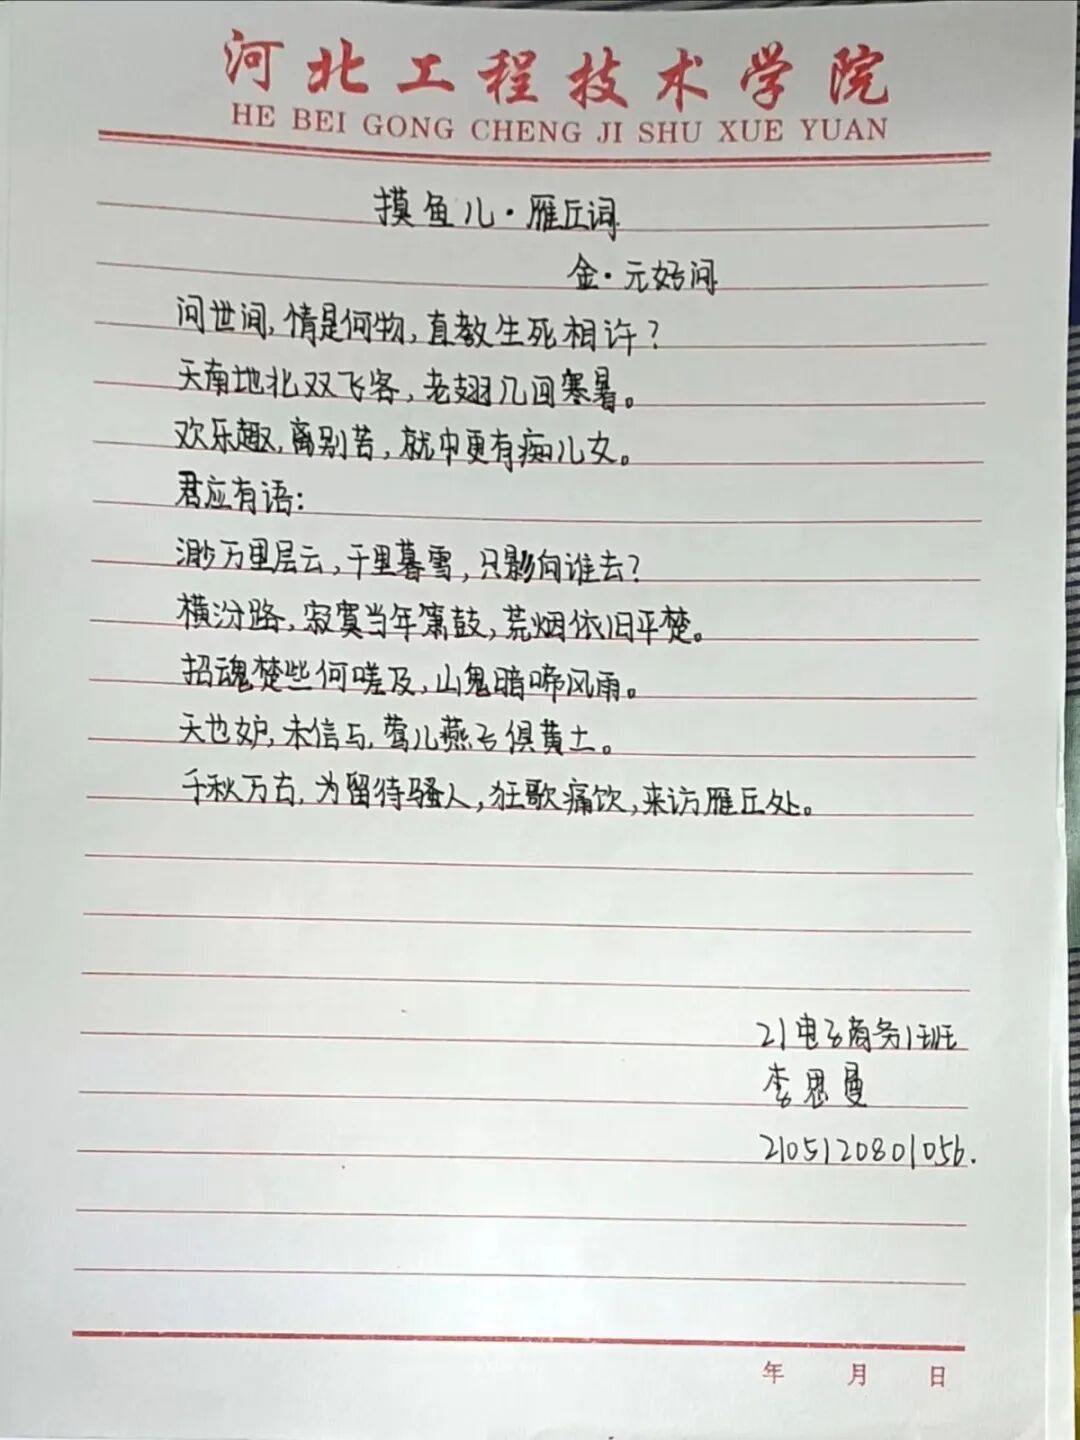 河北工程技术学院
HE BEI GONG CHENG JI SHU XUE YUAN
摸鱼儿·雁丘词
金·元好问
问世间,情是何物,直教生死相许?
天南地北双飞客,老翅几回寒暑。
欢乐趣,离别苦,就中更有痴儿女。
君应有语:
渺万里层云,千里暮雪,只影向谁去?
横汾路,寂寞当年箫鼓,荒烟依旧平楚。
招魂楚些何嗟及,山鬼暗啼风雨。
天也妒,未信与,莺儿燕子俱黄土。
千秋万古,为留待骚人,狂歌痛饮,来访雁丘处。
21电子商务1班
李思曼
2105120801056.
年 月 日